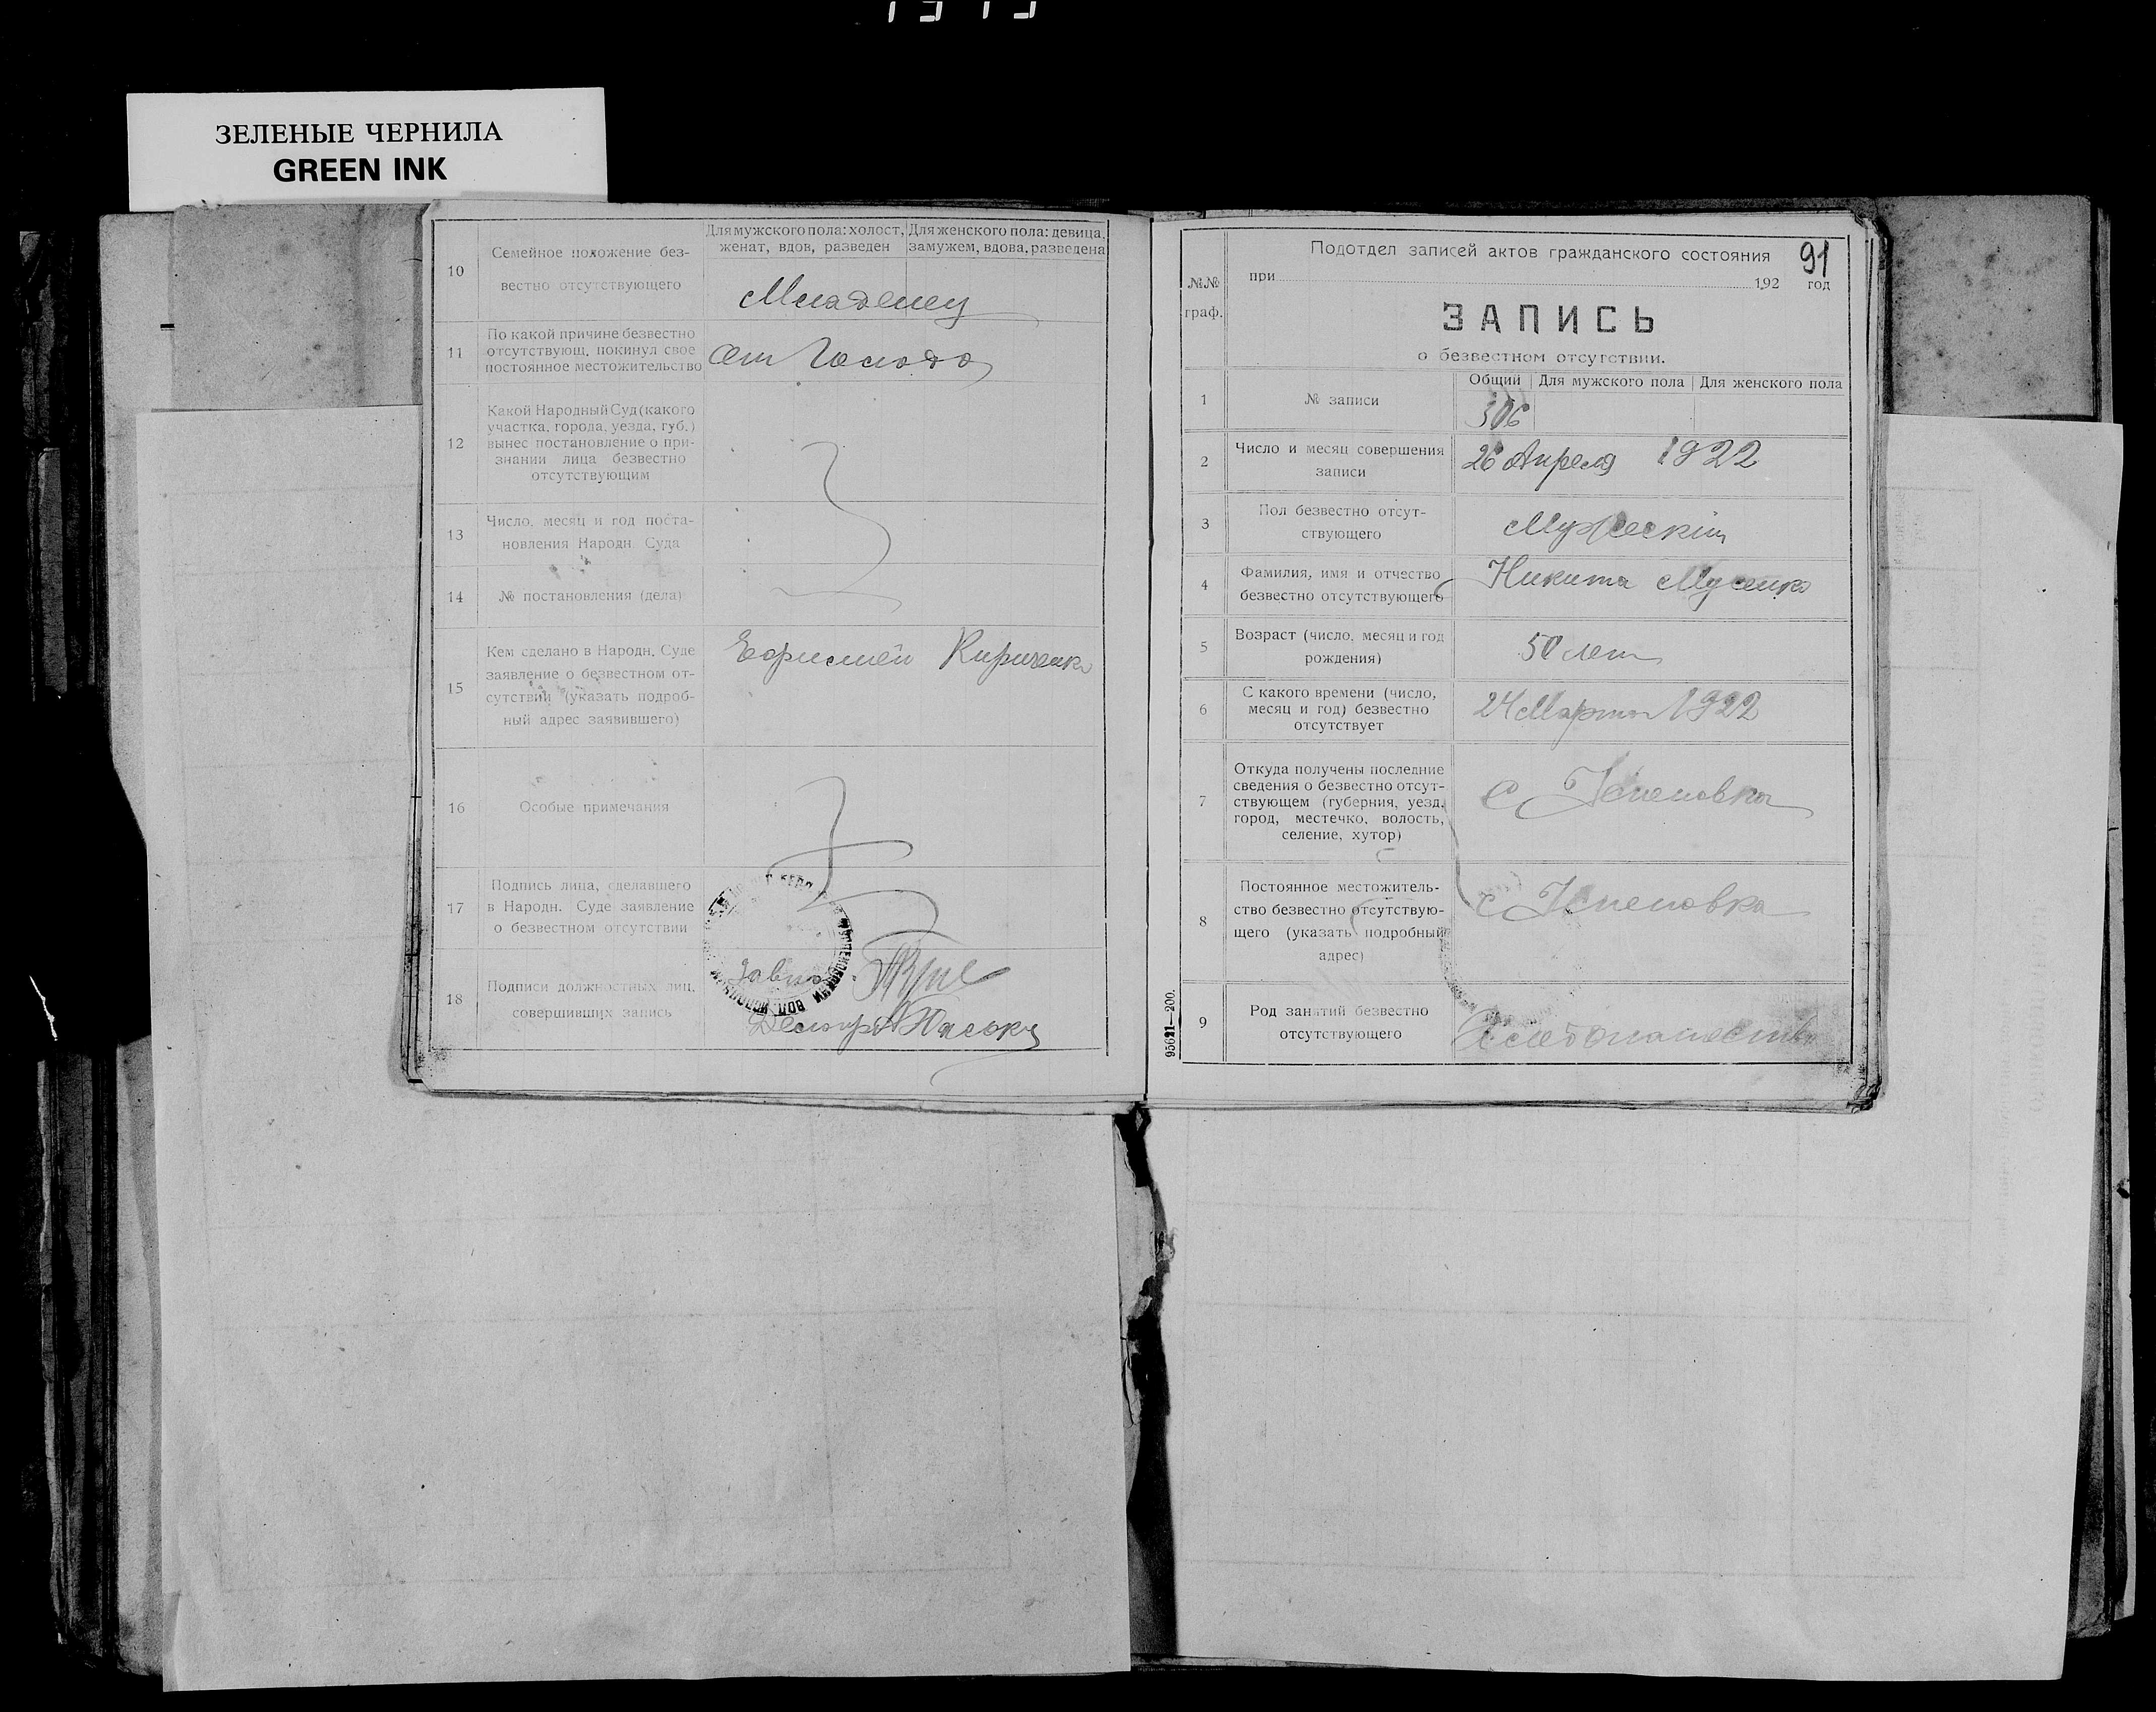 ЗЕЛЕНЫЕ ЧЕРНИЛА
GREEN INK
10
Семейное положение без-
вестно отсутствующего
Для мужского пола: холост,
женат, вдов, разведен
Для женского пола: девица,
замужем, вдова, разведена
Младенец
11
По какой причине безвестно
отсутствующ. покинул свое
постоянное местожительство
От Голода
12
Какой Народный Суд (какого
участка, города, уезда, губ.)
вынес постановление о при-
знании лица безвестно
отсутствующим
13
Число, месяц и год поста-
новления Народн. Суда
14
№ постановления (дела)
15
Кем сделано в Народн. Суде
заявление о безвестном от-
сутствии (указать подроб-
ный адрес заявившего)
Кириченко
16
Особые примечания
17
Подпись лица, сделавшего
в Народн. Суде заявление
о безвестном отсутствии
18
Подписи должностных лиц,
совершивших запись
91
Подотдел записей актов гражданского состояния
при 192 год
№№
граф.
ЗАПИСЬ
о безвестном отсутствии.
1
№ записи
Общий
Для мужского пола
Для женского пола
306
2
Число и месяц совершения
записи
26 Апреля 1922
3
Пол безвестно отсут-
ствующего
Мужескій
4
Фамилия, имя и отчество
безвестно отсутствующего
Никита Мусенко
5
Возраст (число, месяц и год
рождения)
50 лет
6
С какого времени (число,
месяц и год) безвестно
отсутствует
24 Марта 1922
7
Откуда получены последние
сведения о безвестно отсут-
ствующем (губерния, уезд,
город, местечко, волость,
селение, хутор)
с Успеновка
8
Постоянное местожитель-
ство безвестно отсутствую-
щего (указать подробный
адрес)
с Успеновка
9
Род занятий безвестно
отсутствующего
Хлебопашество
95621—200.